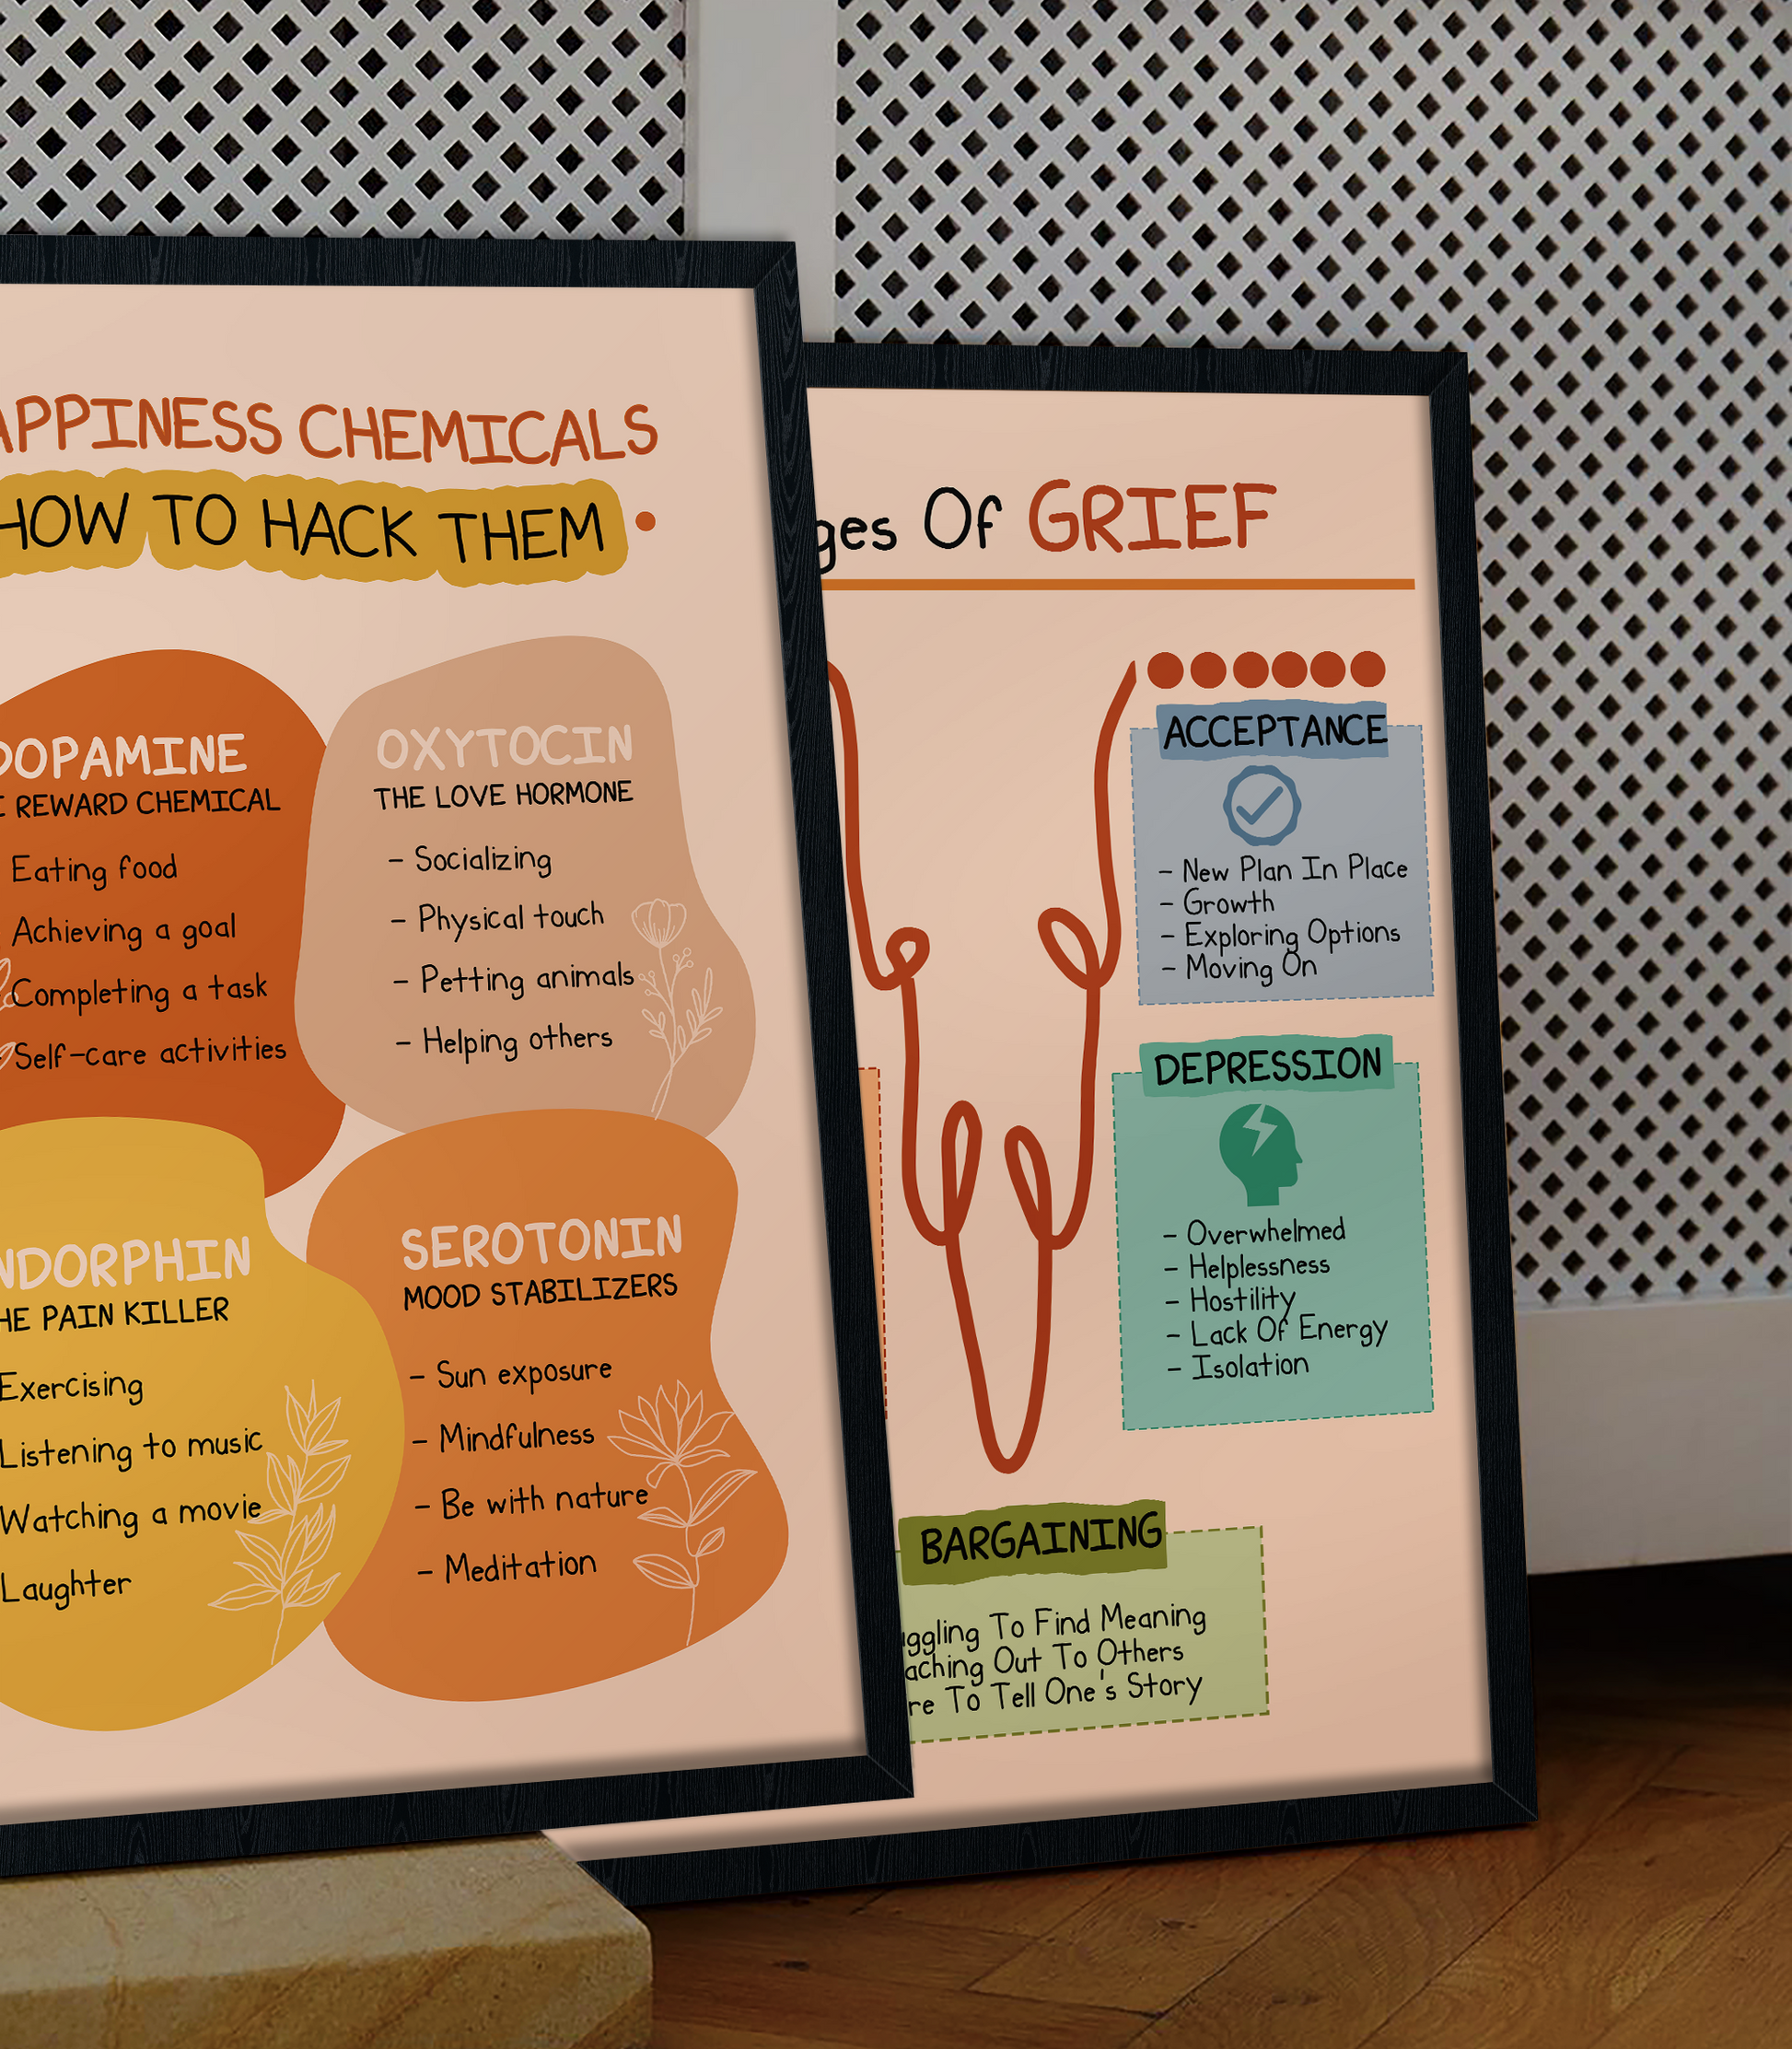 APPINESS CHEMICALS
HOW TO HACK THEM
DOPAMINE
REWARD CHEMICAL
Eating food
Achieving a goal
Completing a task
- Self-care activities
OXYTOCIN
THE LOVE HORMONE
- Socializing
- Physical touch
- Petting animals
- Helping others
NDORPHIN
HE PAIN KILLER
Exercising
Listening to music
Watching a movie
Laughter
SEROTONIN
MOOD STABILIZERS
- Sun exposure
- Mindfulness
- Be with nature
- Meditation
ges Of GRIEF
ACCEPTANCE
- New Plan In Place
- Growth
- Exploring Options
- Moving On
DEPRESSION
- Overwhelmed
- Helplessness
- Hostility
- Lack Of Energy
- Isolation
BARGAINING
ggling To Find Meaning
aching Out To Others
re To Tell One's Story